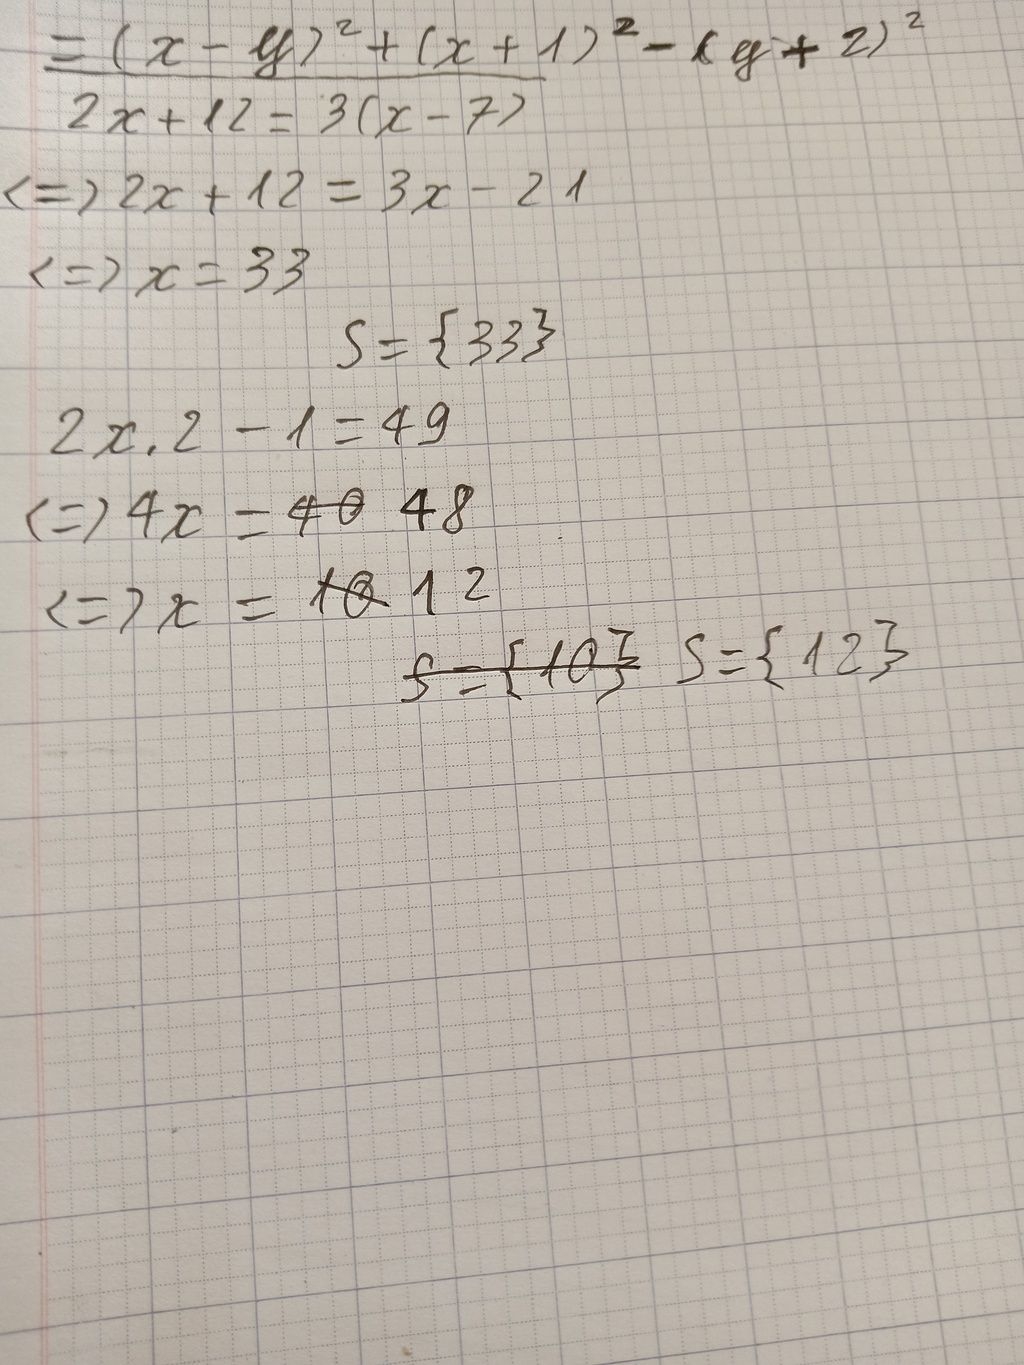 = (x - y)² + (x + 1)² - (y + 2)²
2x + 12 = 3(x - 7)
<=> 2x + 12 = 3x - 21
<=> x = 33
S = {33}
2x . 2 - 1 = 49
<=> 4x = 40 48
<=> x = 10 12
S = {10} S = {12}